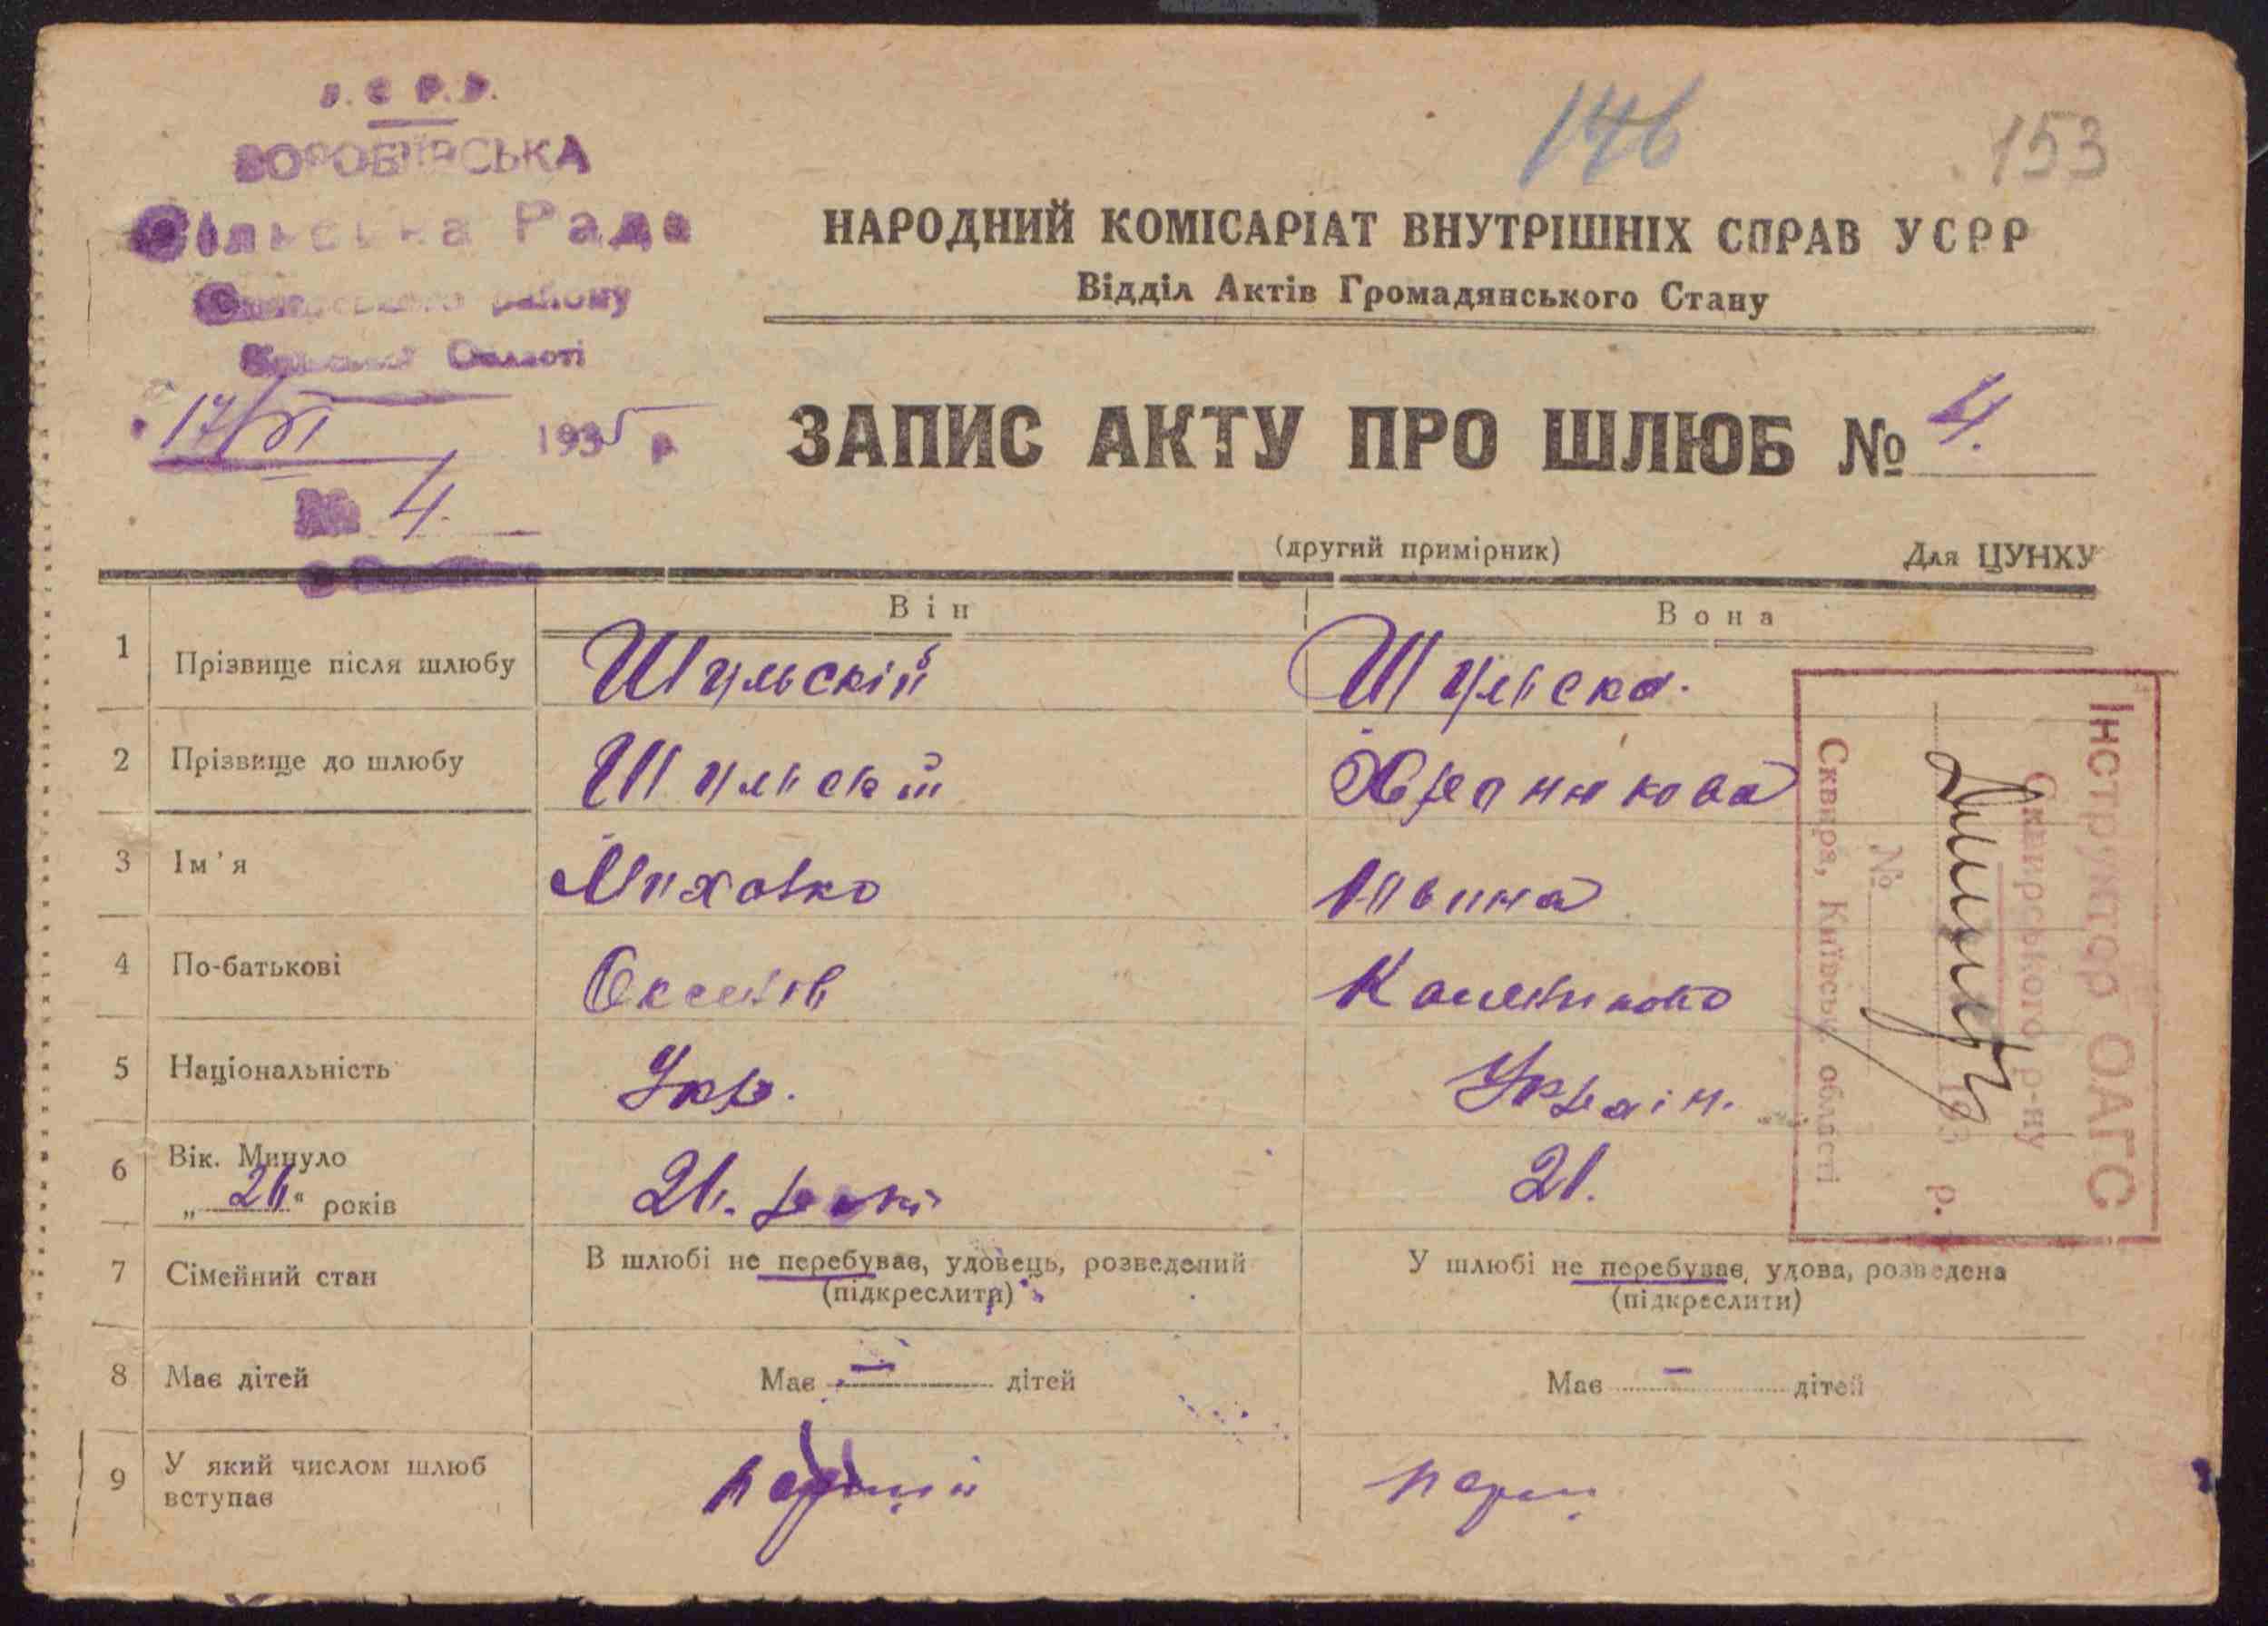 146
153
Рада
району
Області
17/VI 1935 р
№ 4.
НАРОДНИЙ КОМІСАРІАТ ВНУТРІШНІХ СПРАВ УСРР
Відділ Актів Громадянського Стану
ЗАПИС АКТУ ПРО ШЛЮБ № 4.
(другий примірник) Для ЦУНХУ
Він Вона
1 Прізвище після шлюбу Шульскій Шульска.
2 Прізвище до шлюбу Шульскій
3 Ім'я
4 По-батькові
5 Національність Укр. Украін.
6 Вік. Минуло
„ 21 “ років 21. 21.
7 Сімейний стан В шлюбі не перебуває, удовець, розведений У шлюбі не перебуває, удова, розведена
(підкреслити) (підкреслити)
8 Має дітей Має — дітей Має — дітей
9 У який числом шлюб
вступає перший перш
Інструктор ОАГС
Сквирського р-ну
193 р.
№
Сквира, Київськ. області